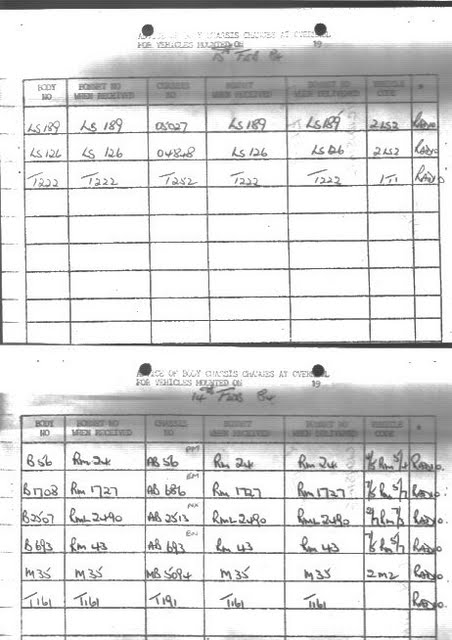 ADVICE OF BODY CHASSIS CHANGES AT OVERHAUL
FOR VEHICLES MOUNTED ON 15th Feb 84 19
BODY NO BONNET NO WHEN RECEIVED CHASSIS NO BONNET BONNET NO WHEN DELIVERED VEHICLE CODE *
LS 189 LS 189 05027 LS 189 LS 189 2LS2 RADIO
LS 126 LS 126 04848 LS 126 LS 126 2LS2 RADIO
T222 T222 T252 T222 T222 1T1 RADIO
ADVICE OF BODY CHASSIS CHANGES AT OVERHAUL
FOR VEHICLES MOUNTED ON 14th Feb 84 19
BODY NO BONNET NO WHEN RECEIVED CHASSIS NO BONNET BONNET NO WHEN DELIVERED VEHICLE CODE *
B56 RM 24 AB 56 RM 24 RM 24 RADIO
B1708 RM 1727 AB 686 RM 1727 RM 1727 RADIO
B2567 RML 2490 AB 2513 RML 2490 RML 2490 RADIO
B693 RM 43 AB 693 RM 43 RM 43 RADIO
M35 M35 MB 5094 M35 M35 2M2 RADIO
T161 T161 T191 T161 T161 RADIO